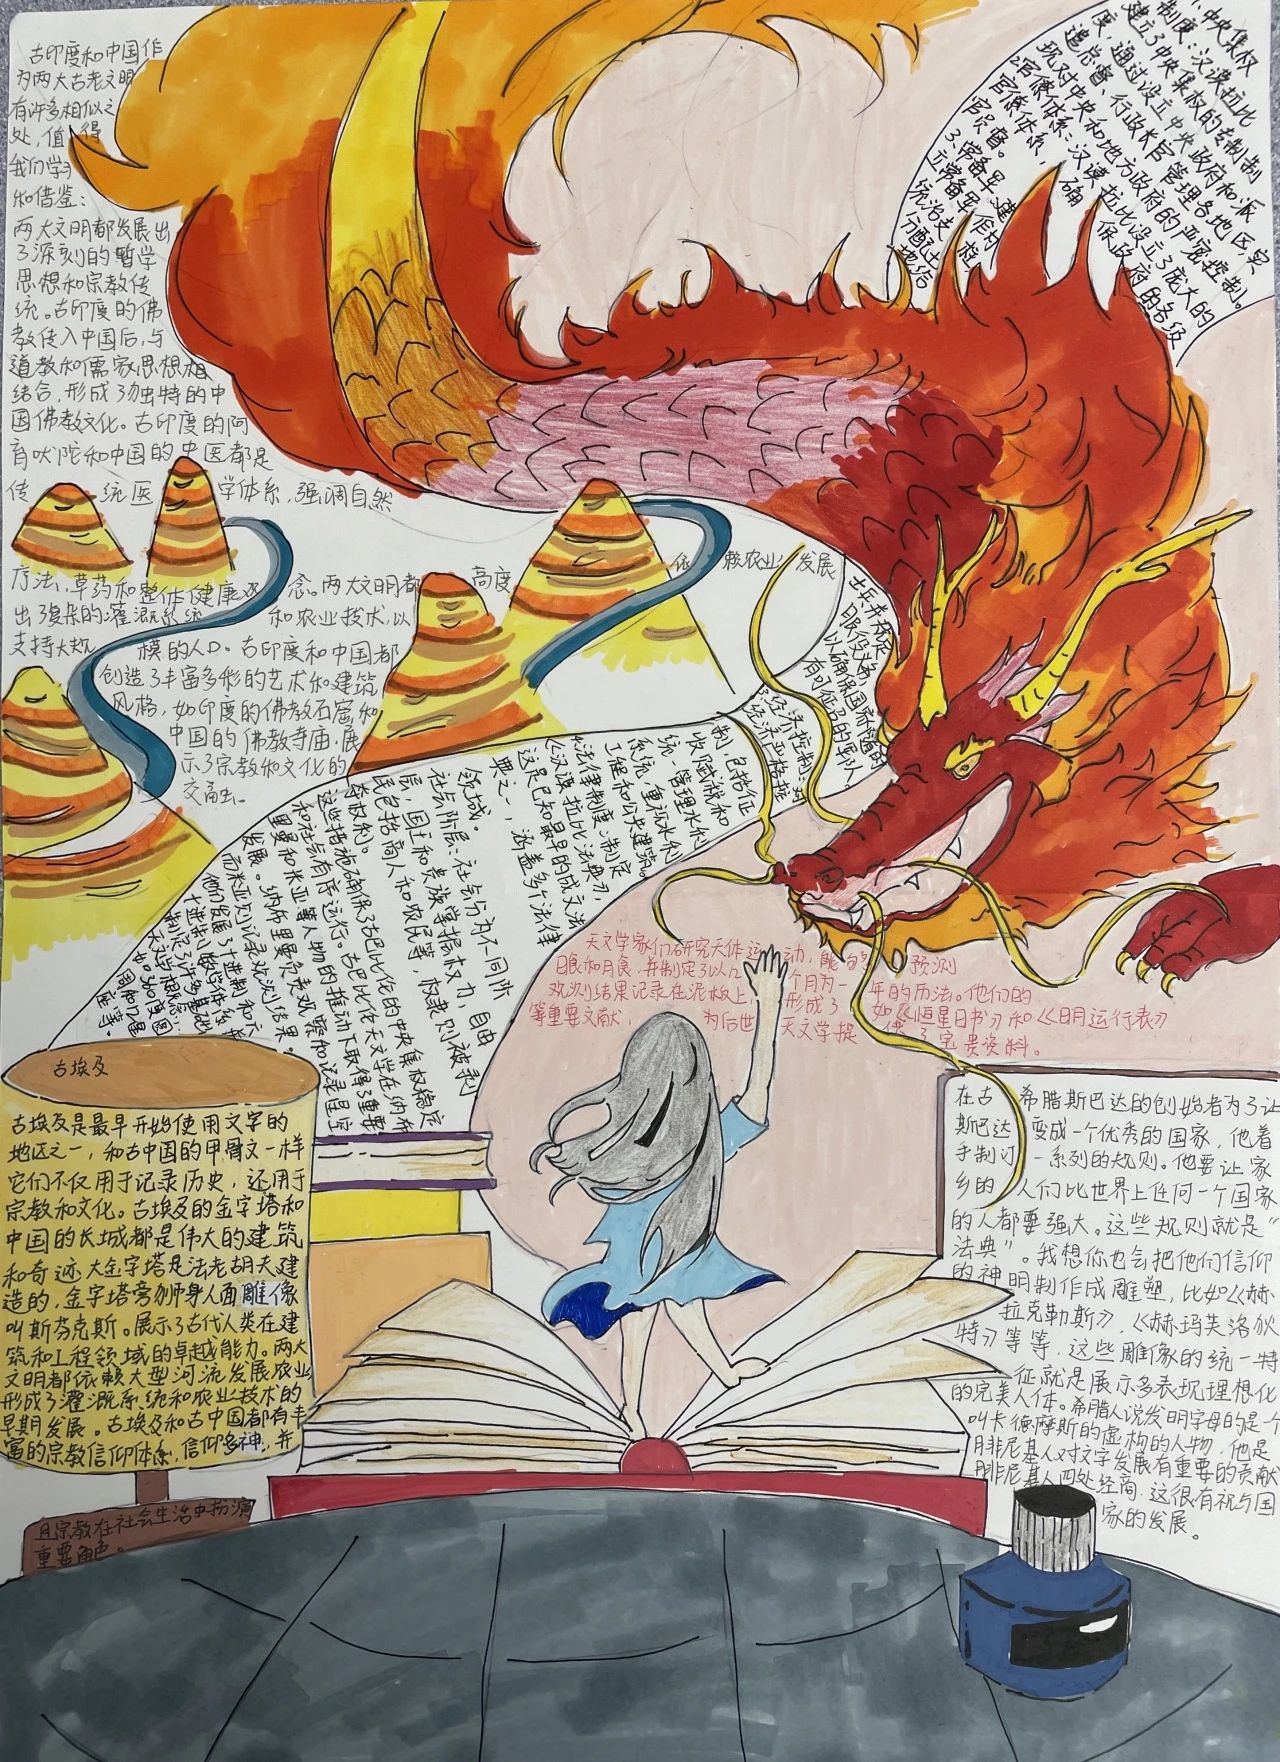 古印度和中国作
为两大古老文明
有许多相似之
处，值得
我们学习
和借鉴：
两大文明都发展出
了深刻的哲学
思想和宗教传
统。古印度的佛
教传入中国后，与
道教和儒家思想相
结合，形成了独特的中
国佛教文化。古印度的阿
育吠陀和中国的中医都是
传统医学体系，强调自然
疗法，草药和整体健康观念。两大文明都高度依赖农业，发展
出了复杂的灌溉系统和农业技术，以
支持大规模的人口。古印度和中国都
创造了丰富多彩的艺术和建筑
风格，如印度的佛教石窟和
中国的佛教寺庙，展
示了宗教和文化的
交融。
1.中央集权
制度：汉谟拉比
建立了中央集权的专制制
度，通过设立中央政府和派
遣总督、行政长官管理各地区，实
现对中央和地方政府的严密控制。
2.官僚体系：汉谟拉比设立了庞大的
官僚体系，确保政府的各级
官员督。
3.常备军：建
立常备军作为
统治支柱，
分配土
地给
士兵并规定
服役义务，
以确保国家随时
有可征召的军队
3.经济控制：对
经济严格控
制，包括征
收赋税和
统一管理水利
系统，重视水利
工程和公共建筑。
4.法律制度：制定
《汉谟拉比法典》，
这是已知最早的成文法
典之一，涵盖多个法律
领域。
社会阶层：社会分为不同阶
层，国王和贵族掌握权力，自由
民包括商人和农民等，奴隶则被剥
夺权利。
这些措施确保了古巴比伦的中央集权稳定
和社会有序运行。古巴比伦天文学在纳布
里曼和米亚等人物的推动下取得了重要
发展。纳布里曼负责观察和记录星空
而米亚则记录观测结果。
他们发展了十进制和六
十进制数学体系，并
制定了许多基础
天文学概念：
如360度圆
周和卫星
座等。
天文学家们研究天体运动，能够预测
日食和月食，并制定了以几个月为一年的历法。他们的
观测结果记录在泥板上，形成了如《恒星日书》和《日月运行表》
等重要文献，为后世天文学提供了宝贵资料。
古埃及
古埃及是最早开始使用文字的
地区之一，和古中国的甲骨文一样
它们不仅用于记录历史，还用于
宗教和文化。古埃及的金字塔和
中国的长城都是伟大的建筑
和奇迹，大金字塔是法老胡夫建
造的，金字塔旁狮身人面雕像
叫斯芬克斯。展示了古代人类在建
筑和工程领域的卓越能力。两大
文明都依赖大型河流发展农业，
形成了灌溉系统和农业技术的
早期发展。古埃及和古中国都有丰
富的宗教信仰体系，信仰多神，并
且宗教在社会生活中扮演
重要角色。
在古希腊斯巴达的创始者为了让
斯巴达变成一个优秀的国家，他着
手制订一系列的规则。他要让家
乡的人们比世界上任何一个国家
的人都要强大。这些规则就是“
法典”。我想你也会把他们信仰
的神明制作成雕塑，比如《赫
拉克勒斯》，《赫玛芙洛狄
特》等等，这些雕像的统一特
征就是展示多表现理想化
的完美人体。希腊人说发明字母的是个
叫卡德摩斯的虚构的人物，他是
腓尼基人对文字发展有重要的贡献
腓尼基人四处经商，这很有祝与国
家的发展。